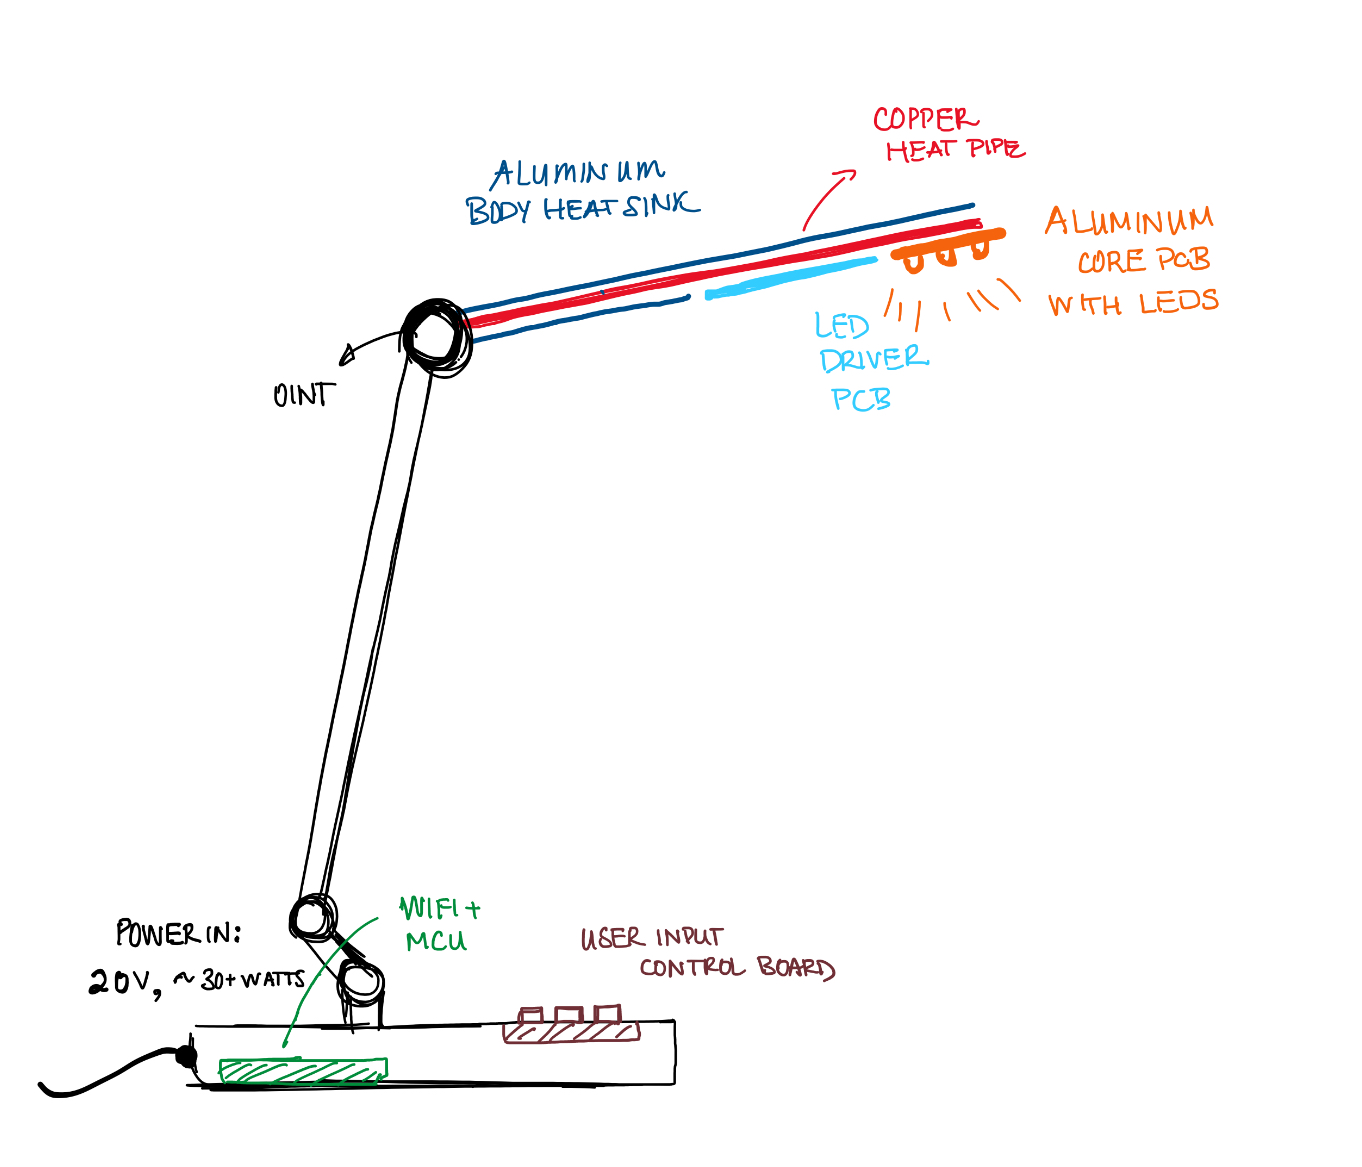 COPPER
HEAT PIPE
ALUMINUM
BODY HEAT SINK
ALUMINUM
CORE PCB
WITH LEDS
LED
DRIVER
PCB
OINT
WIFI +
MCU
POWER IN:
20V, ~30+ WATTS
USER INPUT
CONTROL BOARD